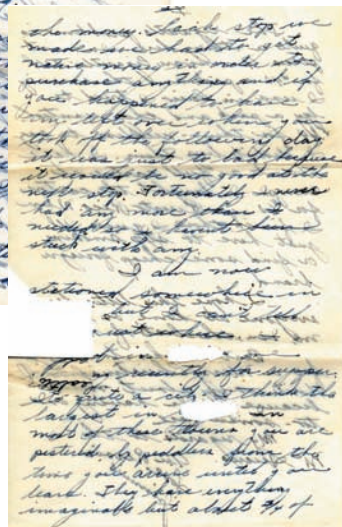 the money. Each stop we
made we had to get
native money in order to
purchase anything and if
you happened to have
some left on when you
took off the following day
it was just to bad because
it would be no good at the
next stop. Fortunately I never
had any more than I
needed so I haven't been
stuck with any.
I am now
stationed somewhere in
but I can't tell
where.
recently for supper.
Its quite a city. I think the
largest in
most of these towns you are
pestered by peddlers from the
time you arrive until you
leave. They have everything
imaginable but almost 3/4 of